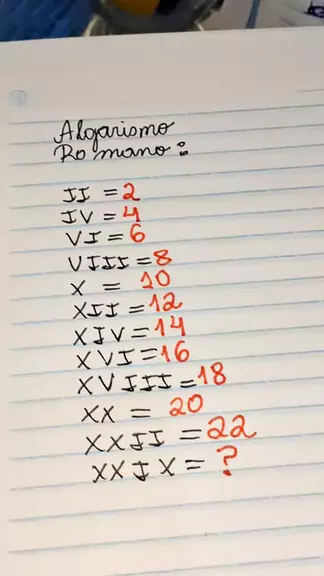 Algarismo
Romano:
II = 2
IV = 4
VI = 6
VIII = 8
X = 10
XII = 12
XIV = 14
XVI = 16
XVIII = 18
XX = 20
XXII = 22
XXIX = ?